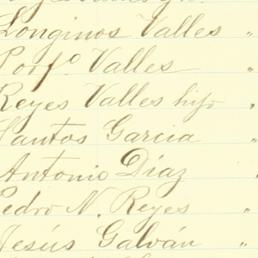 Longinos Valles "
Porfº Valles "
Reyes Valles hijo "
Santos Garcia "
Antonio Díaz "
Pedro N. Reyes "
Jesús Galván "